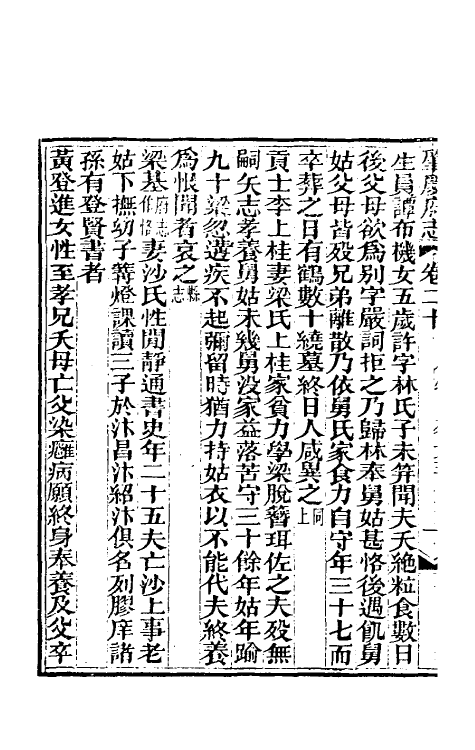 肇慶府志 卷二十
生員譚布機女五歲許字林氏子未笄聞夫夭絶粒食數日
後父母欲為别字嚴詞拒之乃歸林奉舅姑甚恪後遇飢舅
姑父母皆殁兄弟離散乃依舅氏家食力自守年三十七而
卒葬之日有鶴數十繞墓終日人咸異之同上
貢士李上桂妻梁氏上桂家貧力學梁脫簪珥佐之夫殁無
嗣矢志孝養舅姑未幾舅没家益落苦守三十餘年姑年踰
九十梁忽遘疾不起彌留時猶力持姑衣以不能代夫終養
為恨聞者哀之縣志
梁墓妻沙氏性閒靜通書史年二十五夫亡沙上事老
姑下撫幼子篝燈課讀三子於汴昌汴紹汴俱名列膠庠諸
孫有登賢書者
黃登進女性至孝兄夭母亡父染癱病願終身奉養及父卒